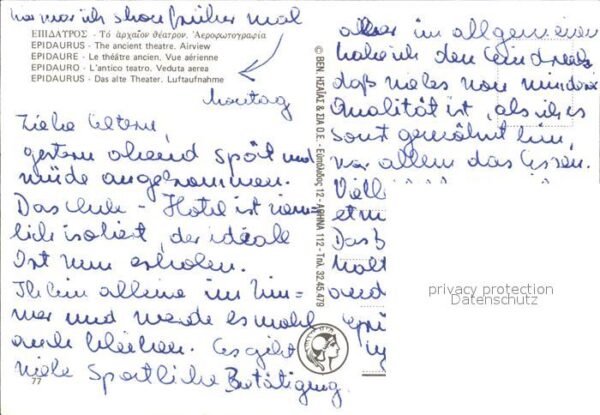 war ich schon früher mal
ΕΠΙΔΑΥΡΟΣ - Τό ἀρχαῖον θέατρον. Ἀεροφωτογραφία
EPIDAURUS - The ancient theatre. Airview
EPIDAURE - Le théâtre ancien. Vue aérienne
EPIDAURO - L'antico teatro. Veduta aerea
EPIDAURUS - Das alte Theater. Luftaufnahme
Montag
Liebe Eltern,
gestern abend spät und
müde angekommen.
Das Club - Hotel ist ziem=
lich isoliert, der ideale
Ort zum erholen.
Ich bin alleine im Zim=
mer und werde es wohl
auch bleiben. Es gibt
viele Sportliche Betätigung
77
© ΒΕΝ. ΗΣΑΪΑΣ & ΣΙΑ Ο.Ε. - Εὐπόλιδος 12 - ΑΘΗΝΑ 112 - Τηλ. 32.45.479
aber im allgemeinen
habe ich den Eindruck
daß vieles von minderer
Qualität ist, als ich es
sonst gewöhnt bin,
vor allem das Essen.
Viell
etw
Das
halt
und
privacy protection
Datenschutz